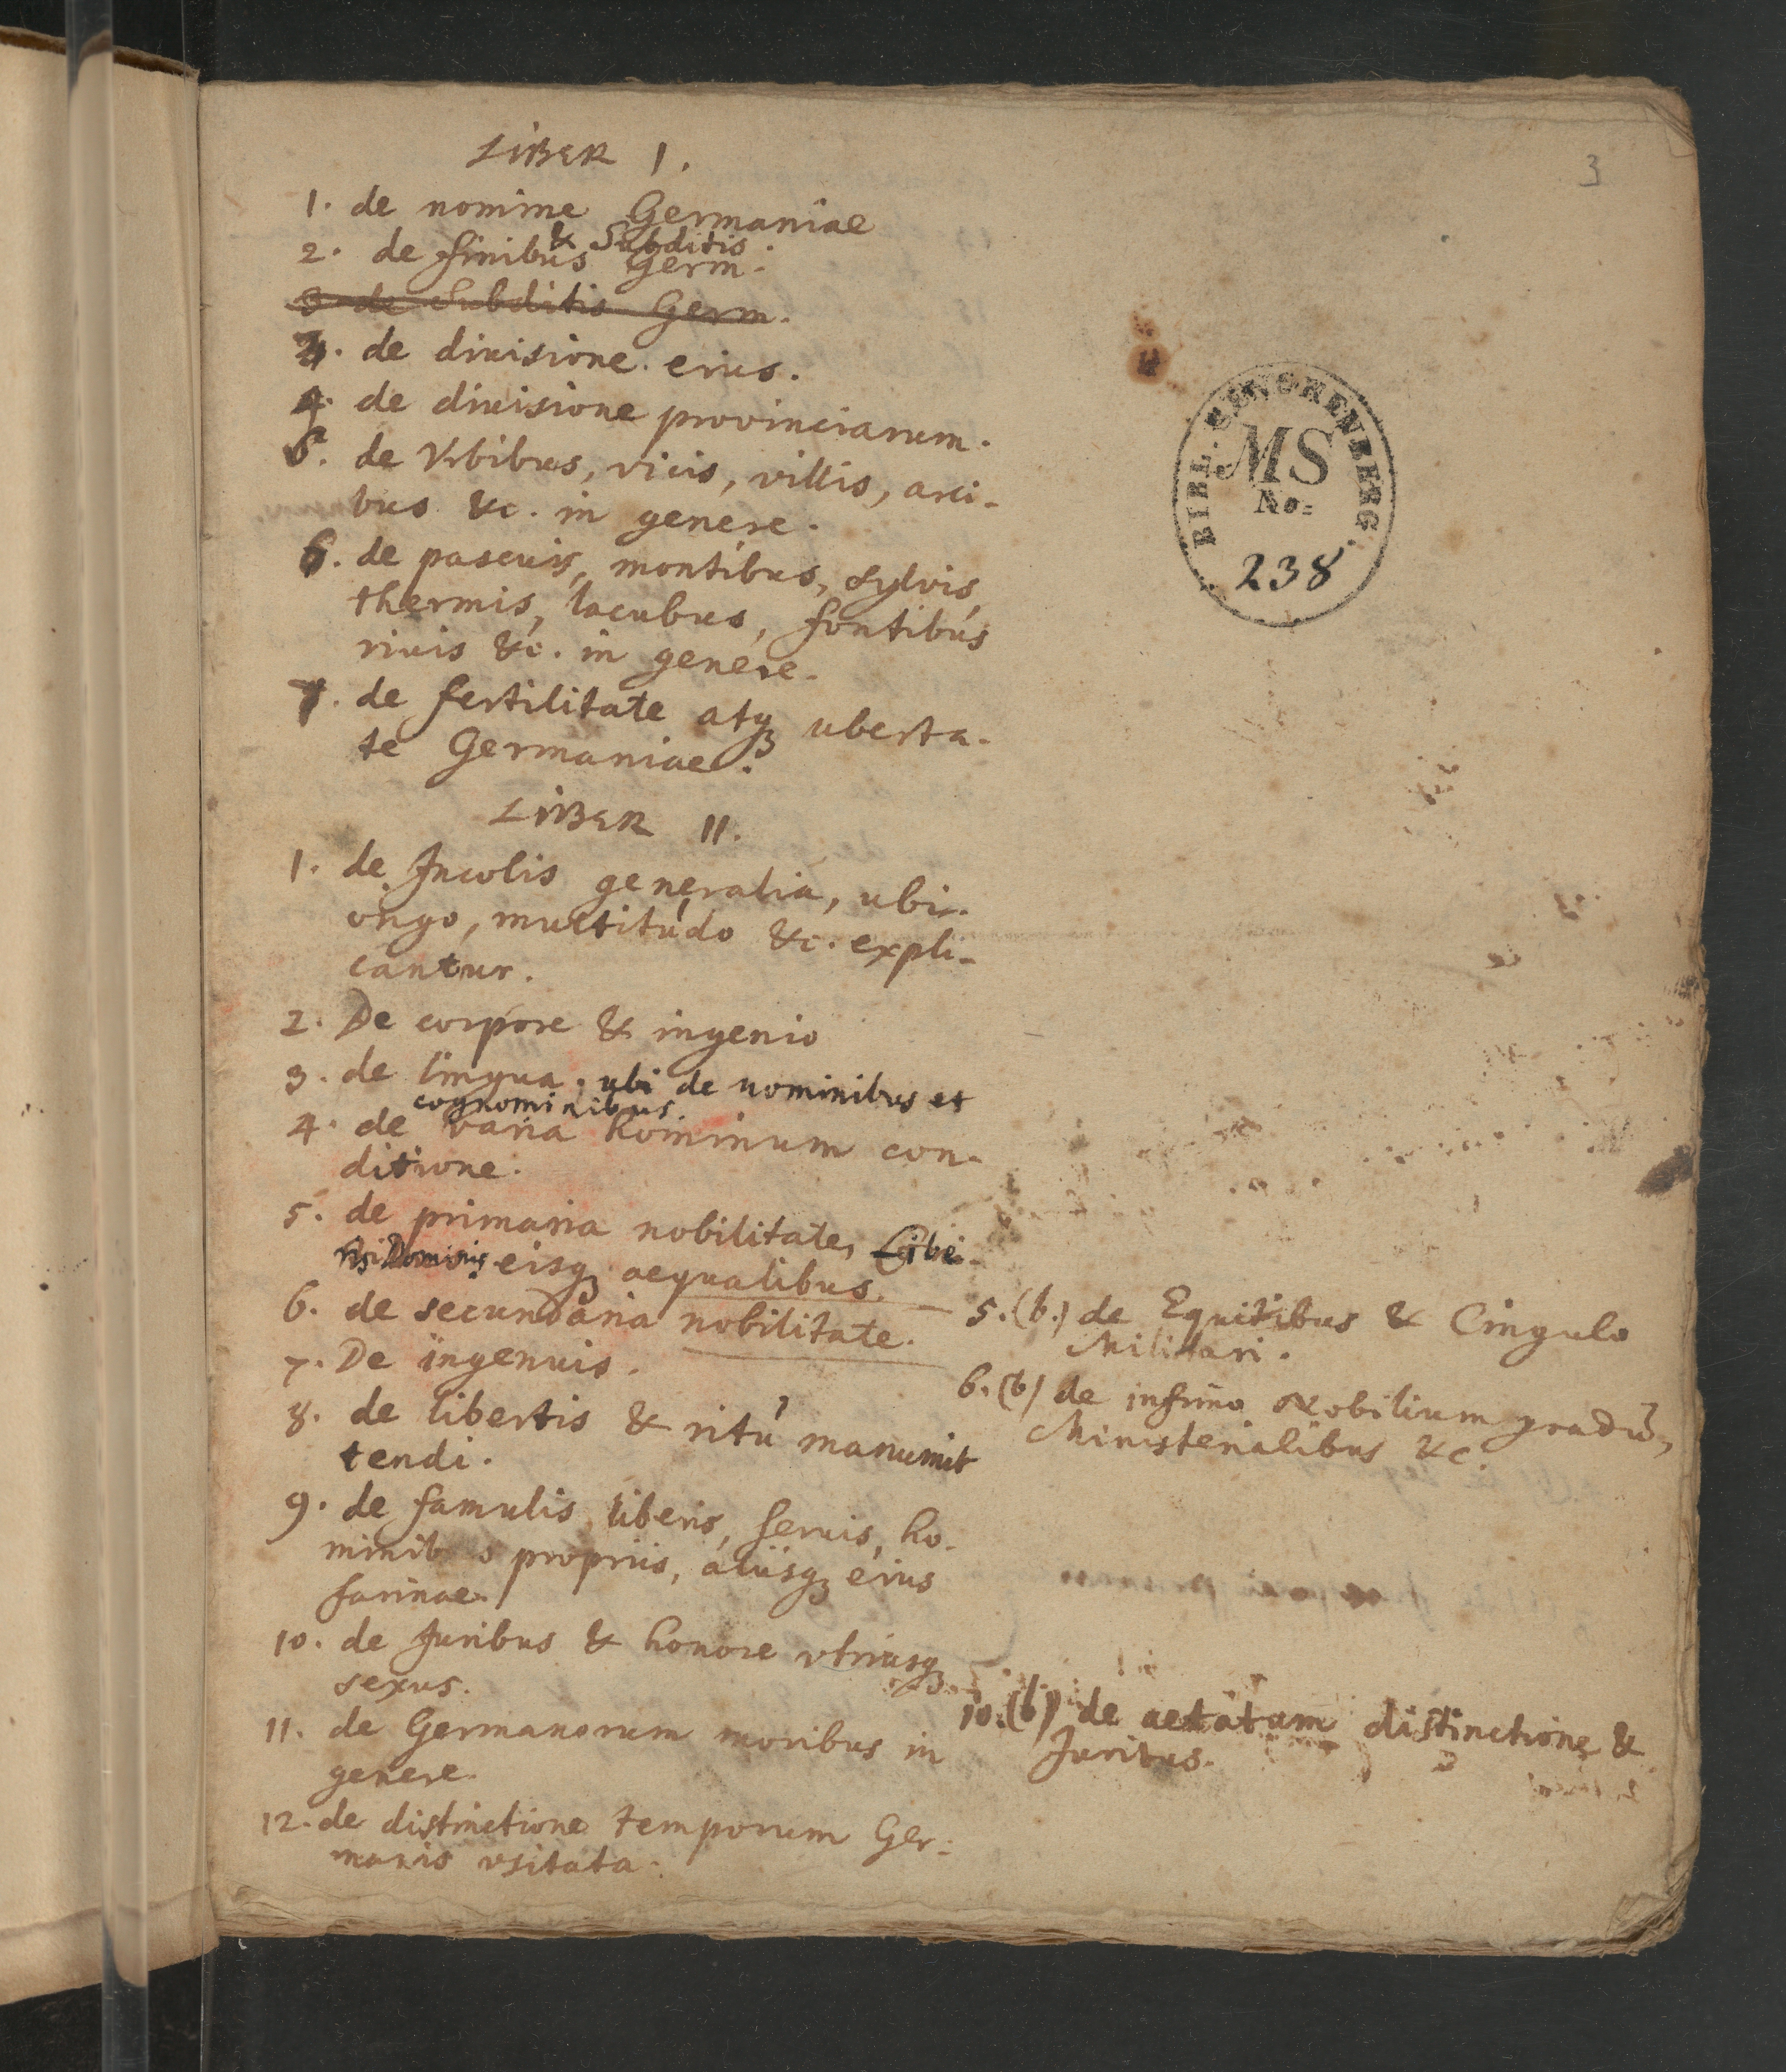 3
LIBER I.
1. de nomine Germaniae
& Subditis
2. de finibus Germ.
3 de Subditis Germ.
3. de diuisione eius.
4. de diuisione provinciarum.
5. de Vrbibus, vicis, villis, arci-
bus &c. in genere.
6. de pascuis, montibus, sylvis,
thermis, lacubus, fontibus
riuis &c. in genere.
7. de fertilitate atq3 uberta-
te Germaniae.
BIBL. GUNORENBERG.
MS
No:
238
LIBER II.
1. de Incolis generalia, ubi
origo, multitudo &c. expli-
cantur.
2. De corpore & ingenio
3. de lingua. ubi de nominibus et
cognominibus.
4. de varia hominum con-
ditione.
5. de primaria nobilitate, Libe-
ris Dominis eisq3 aequalibus.
6. de secundaria nobilitate.
5.(b.) de Equitibus & Cingulo
Militari.
7. De ingenuis.
6.(b) de infimo Nobilium gradu,
Ministerialibus &c.
8. de libertis & ritu manumit
tendi.
9. de famulis liberis, seruis, ho-
minib s propriis, aliisq3 eius
farinae.
10. de Juribus & honore vtriusq3
sexus.
10.(b) de aetatum distinctione &
Juribus.
11. de Germanorum moribus in
genere.
12. de distinctione temporum Ger-
manis vsitata.